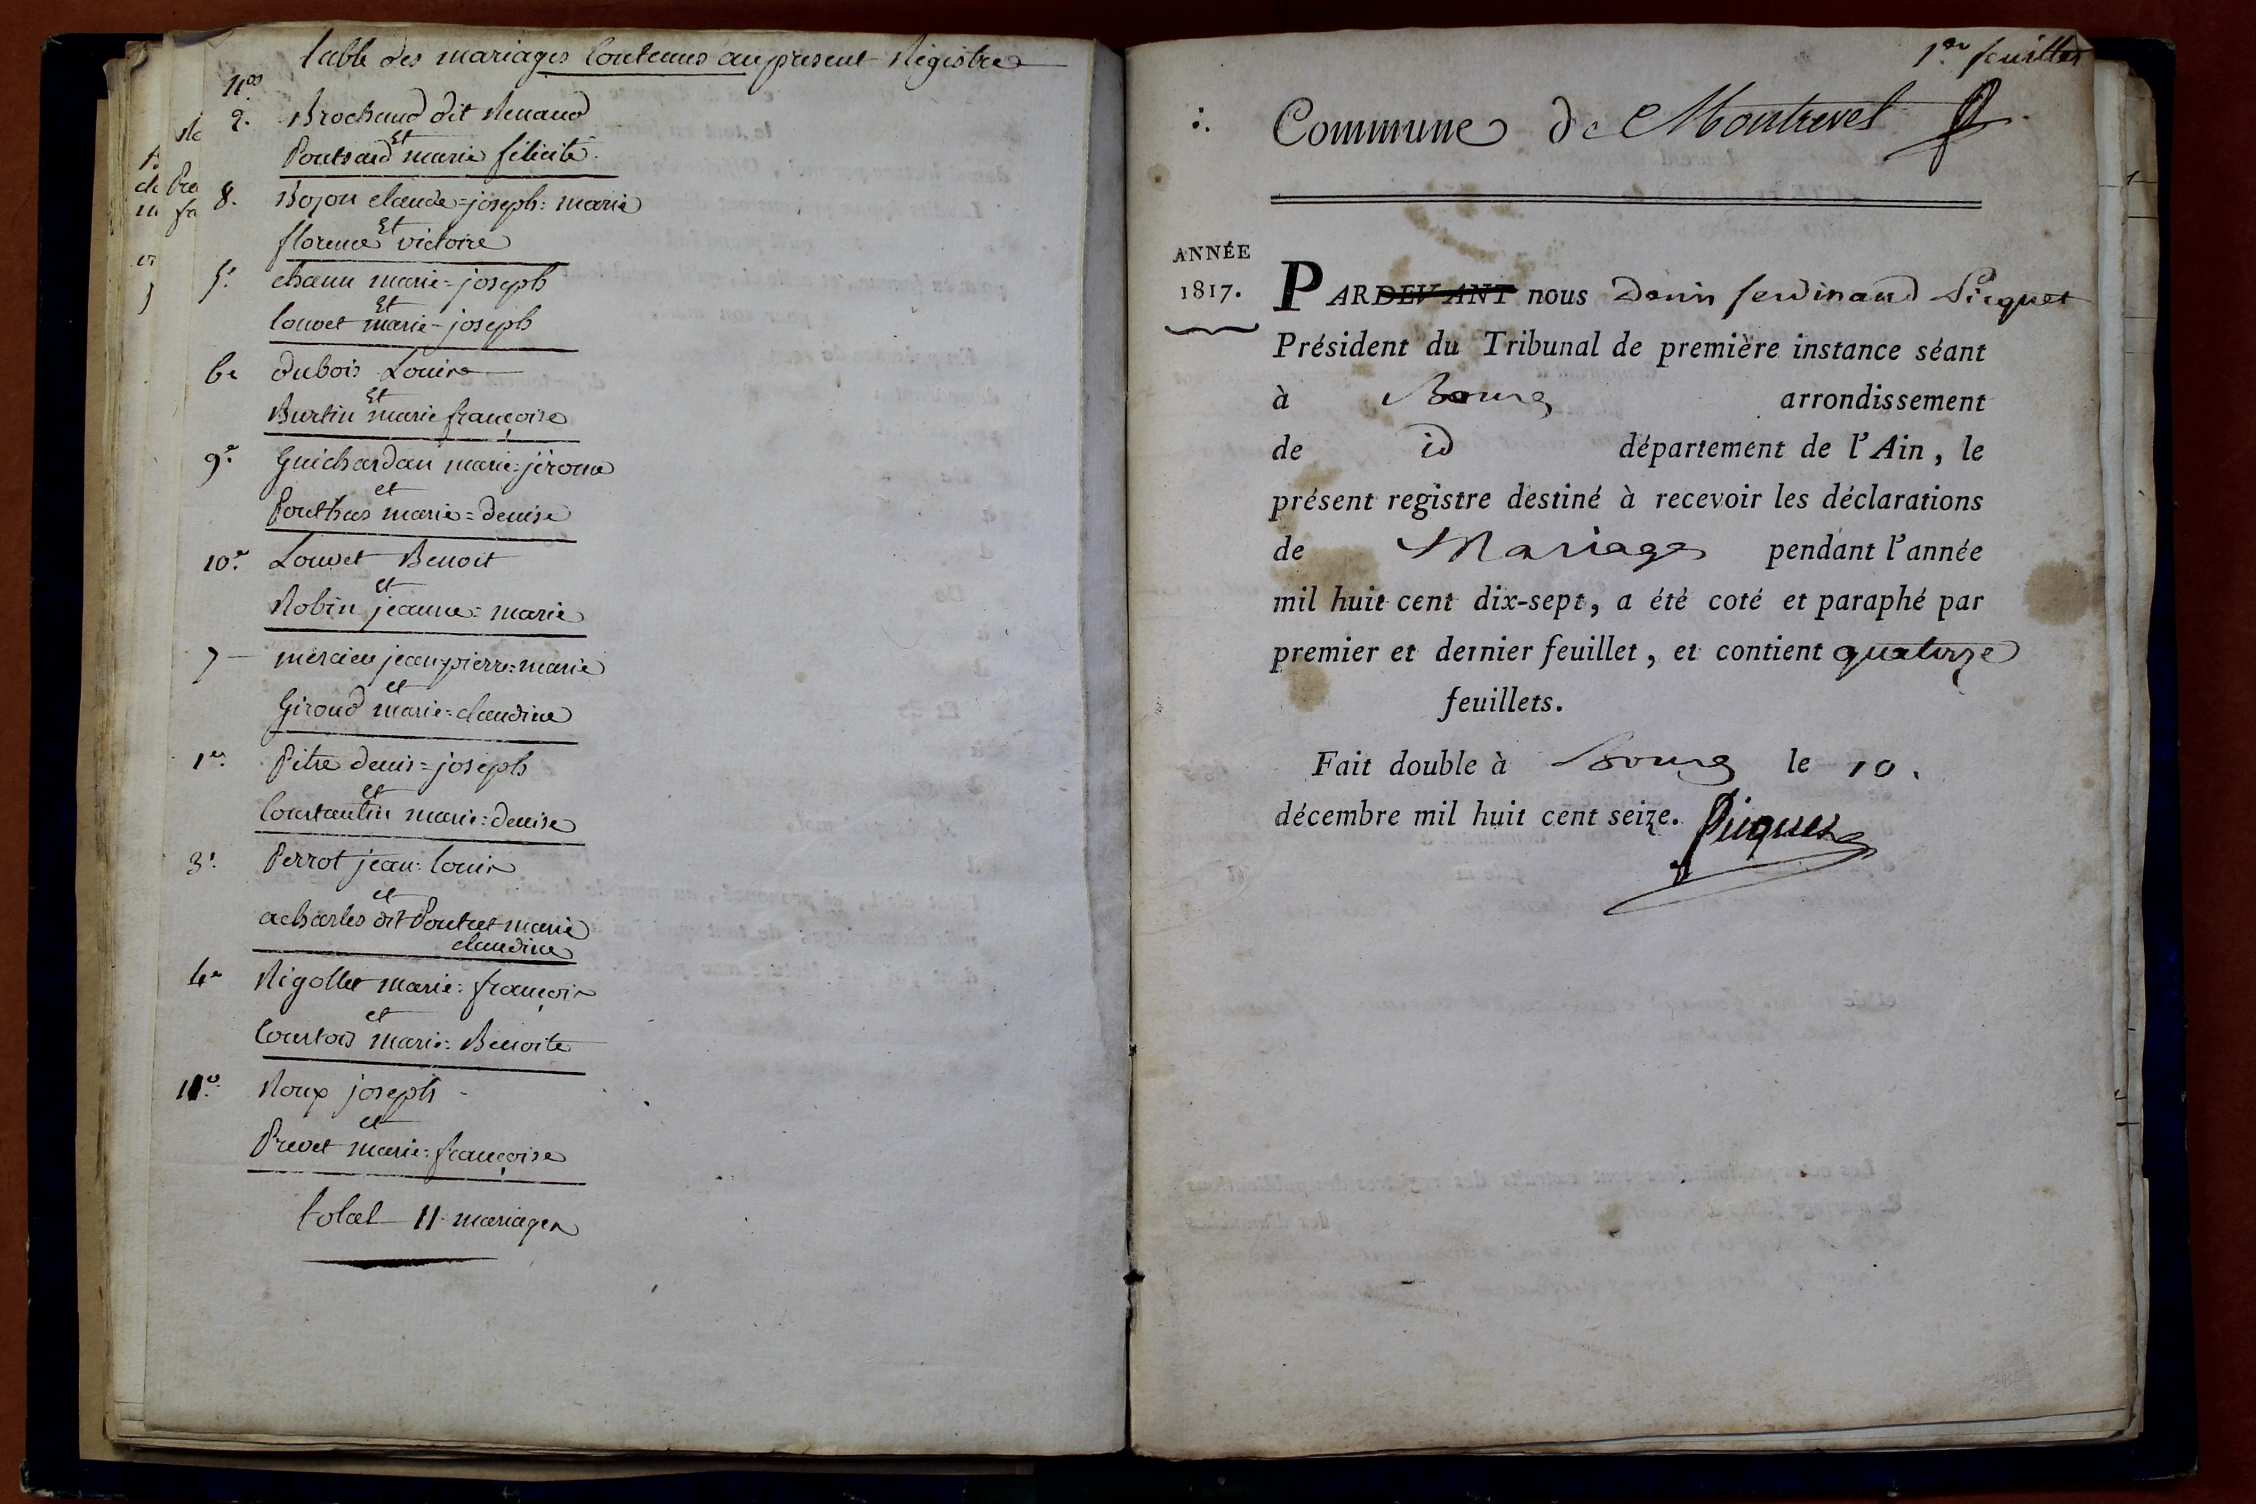 table des mariages Contenus au présent Registre
nos
2. Brochand dit Renaud
Et
Pontsard marie félicité
8. Bozon claude=joseph=marie
Et
florence victoire
5e chanu marie=joseph
Et
Louvet marie=joseph
6e dubois Louis
Et
Burtin marie françoise
9e Guichardan marie=jérome
et
Pouthus marie=denise
10e Louvet Benoit
et
Robin jeanne=marie
7 mercier jean=pierre=marie
et
Giroud marie=claudine
1er Pitre denis=joseph
et
Constantin marie=denise
3e Perrot jean=louis
et
acharles dit Pontet marie
claudine
4e Rigollet marie=françois
et
Courtois marie=Benoite
11e Roux joseph
et
Prevet marie=françoise
total 11 mariages
1er feuillet
Commune de Montrevel
ANNÉE
1817.
PARDEVANT nous Denis ferdinand Picquet
Président du Tribunal de première instance séant
à Bourg arrondissement
de id département de l'Ain, le
présent registre destiné à recevoir les déclarations
de Mariages pendant l'année
mil huit cent dix-sept, a été coté et paraphé par
premier et dernier feuillet, et contient quatorze
feuillets.
Fait double à Bourg le 10.
décembre mil huit cent seize. Picquet